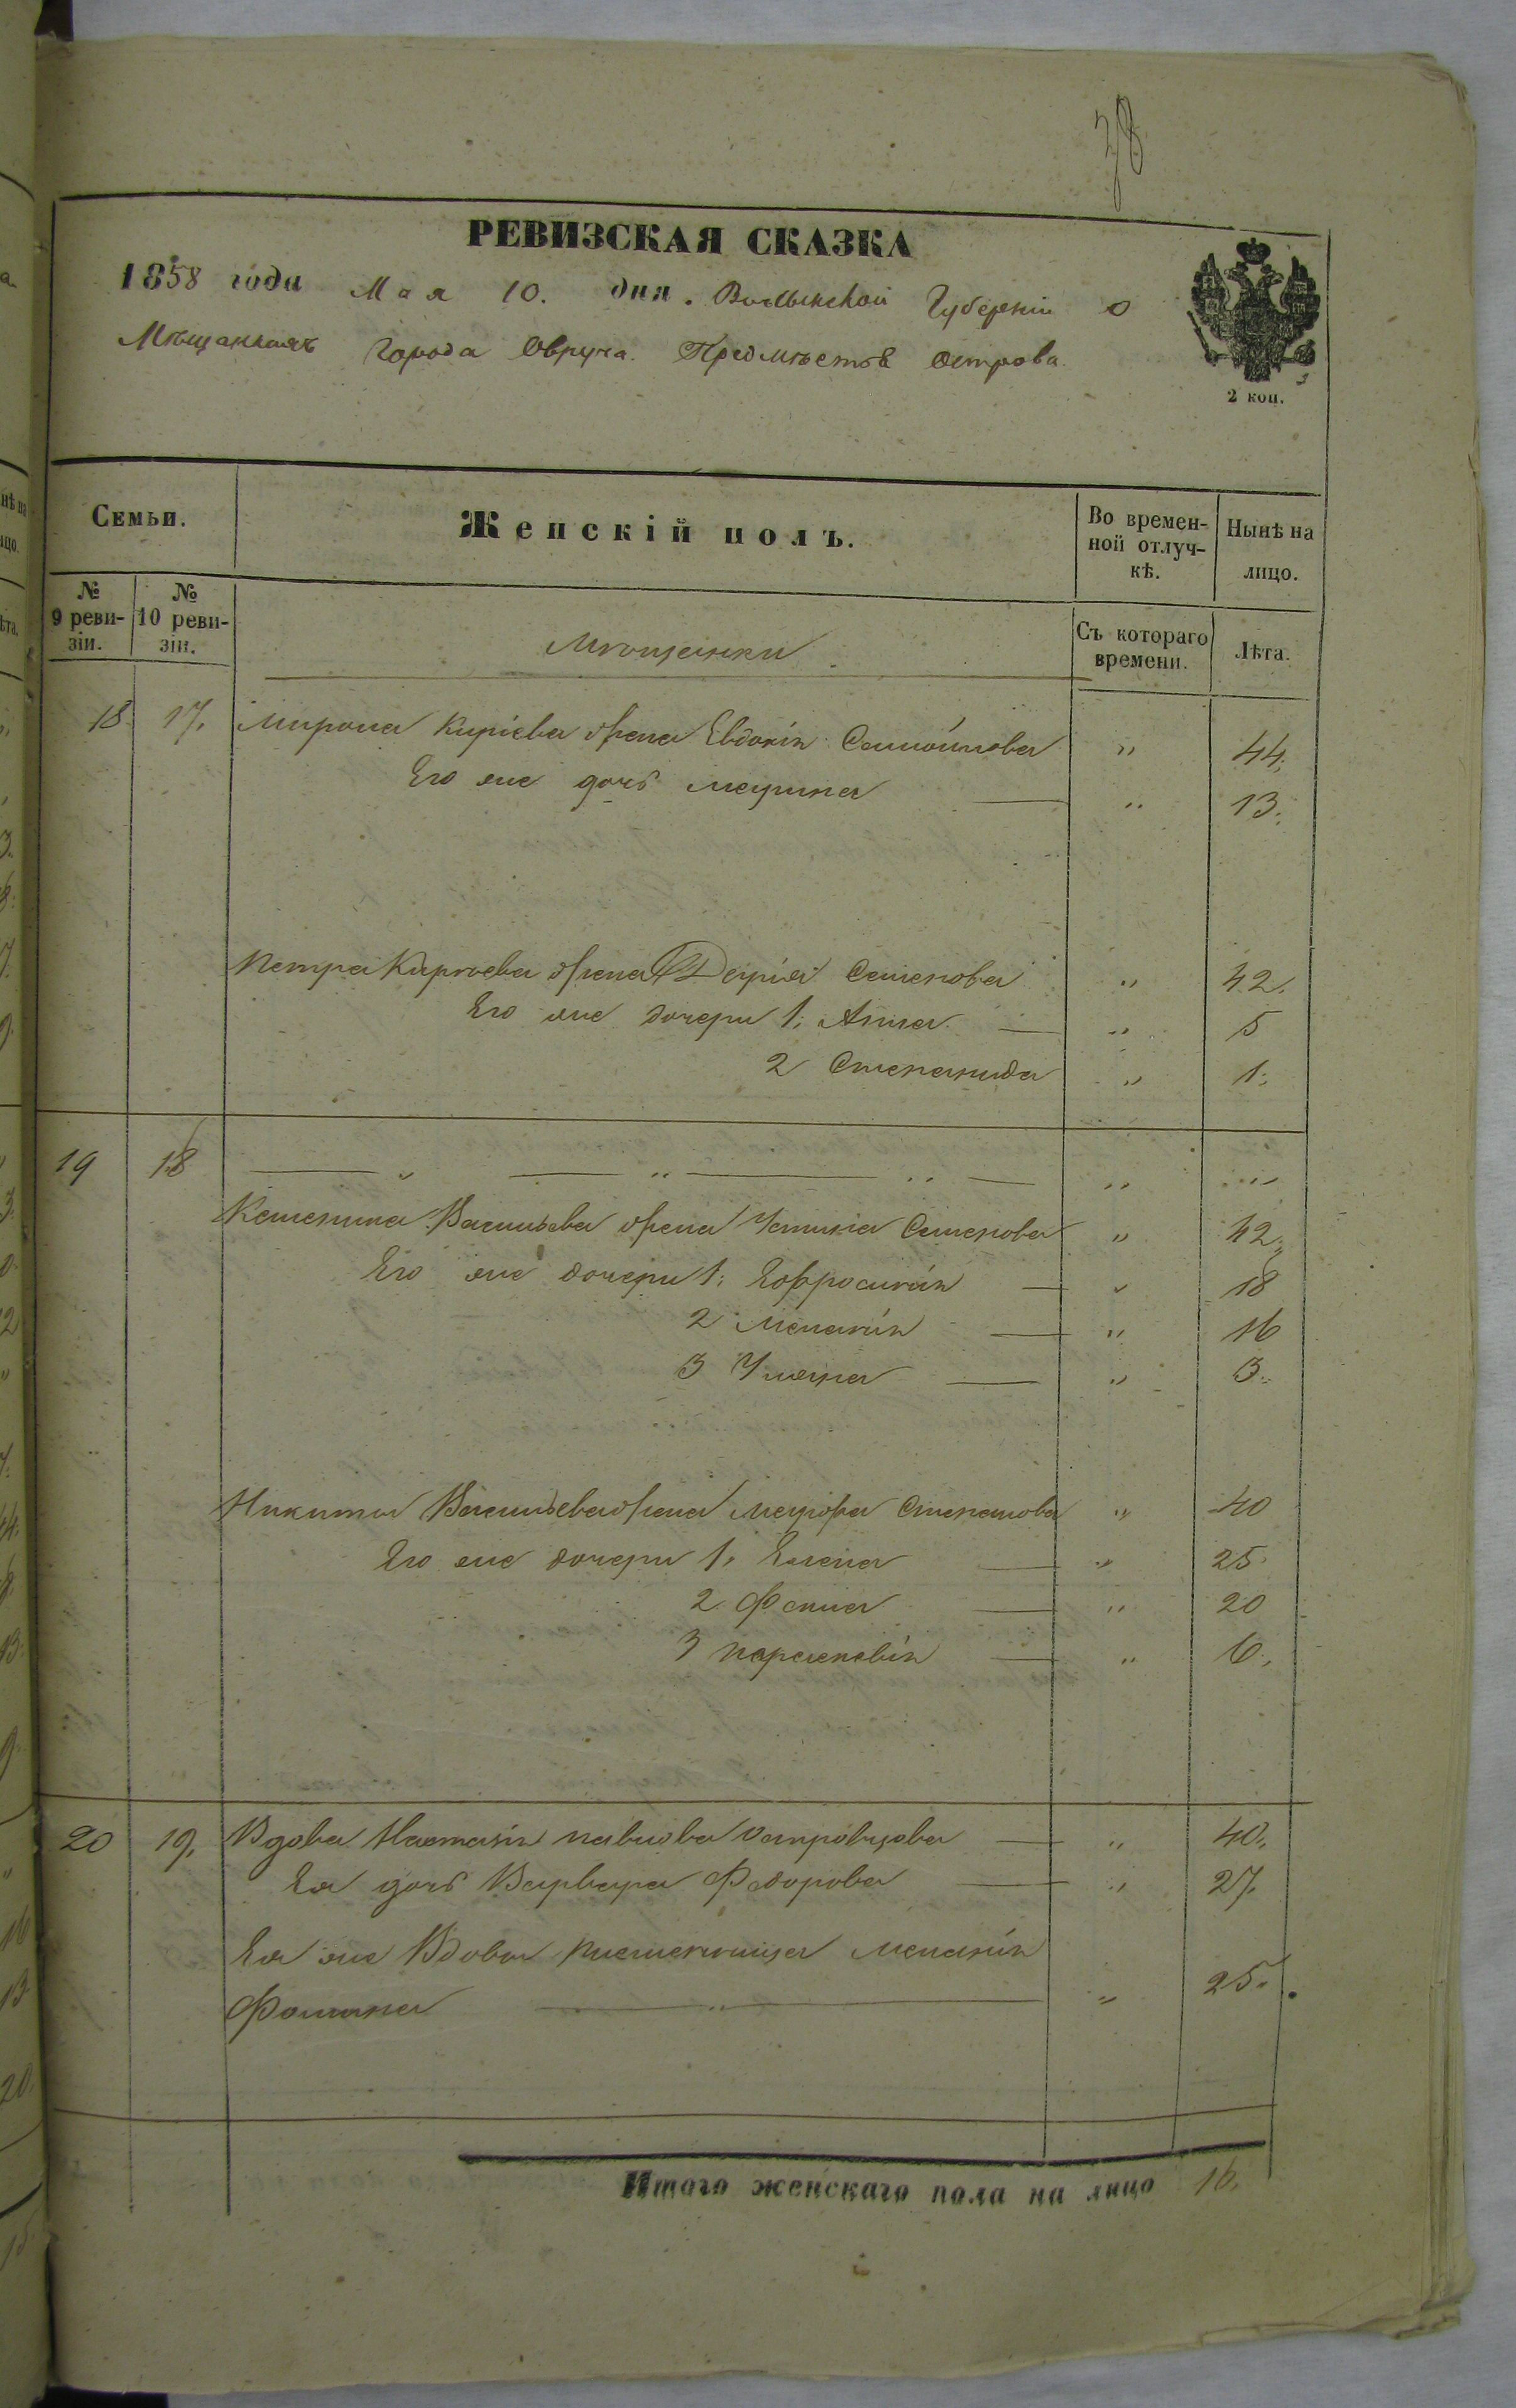 78
РЕВИЗСКАЯ СКАЗКА
1858 года Мая 10. дня. Волынской Губерніи о
Мѣщанкахъ города Овруча. Предмѣстѣ Острова.
2 коп.
Семьи.
Женскій полъ.
Во времен-
ной отлуч-
кѣ.
Нынѣ на
лицо.
№
9 реви-
зіи.
№
10 реви-
зіи.
Мѣщанки
Съ котораго
времени.
Лѣта.
18 17. Мирона Киріева жена Евдокія Самойлова " 44.
Его же дочь Марина " 13.
Петра Киріева жена Дарія Семенова " 42.
Его же дочери 1. Анна " 5
2 Степанида " 1.
19 18 " " " " "
Василѣева жена Устинія Семенова " 42.
Его же дочери 1. Ефросинія " 18
2 Меланія " 16
3 Уляна " 3.
Никиты Василѣева жена Марфа Степанова " 40
Его же дочери 1. Елена " 25.
2 Фенна " 20
3 Параскевія " 6.
20 19. Вдова Настасія Павлова " 40.
Ея дочь Варвара Федорова " 27.
Ея же Вдовы племенница Меланія
Фомина " " 25.
Итого женскаго пола на лицо 16.